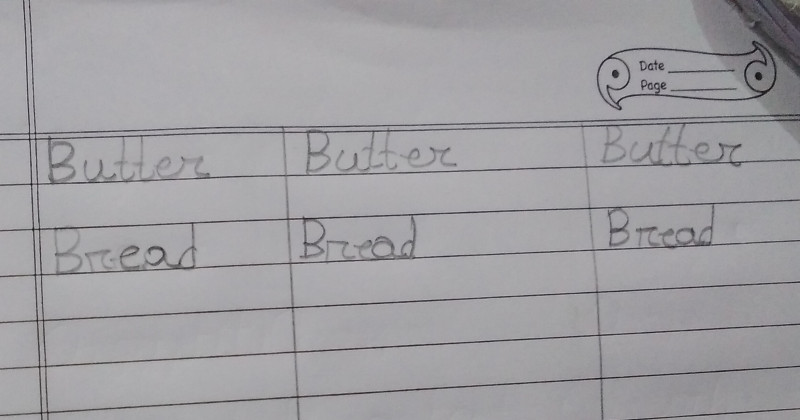 Date
Page
Butter Butter Butter
Bread Bread Bread